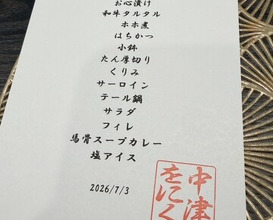 お心漬け
和牛タルタル
ホホ煮
はちかつ
小鉢
たん厚切り
くりみ
サーロイン
テール鍋
サラダ
フィレ
馬骨スープカレー
塩アイス
2026/7/3
中津
をにく